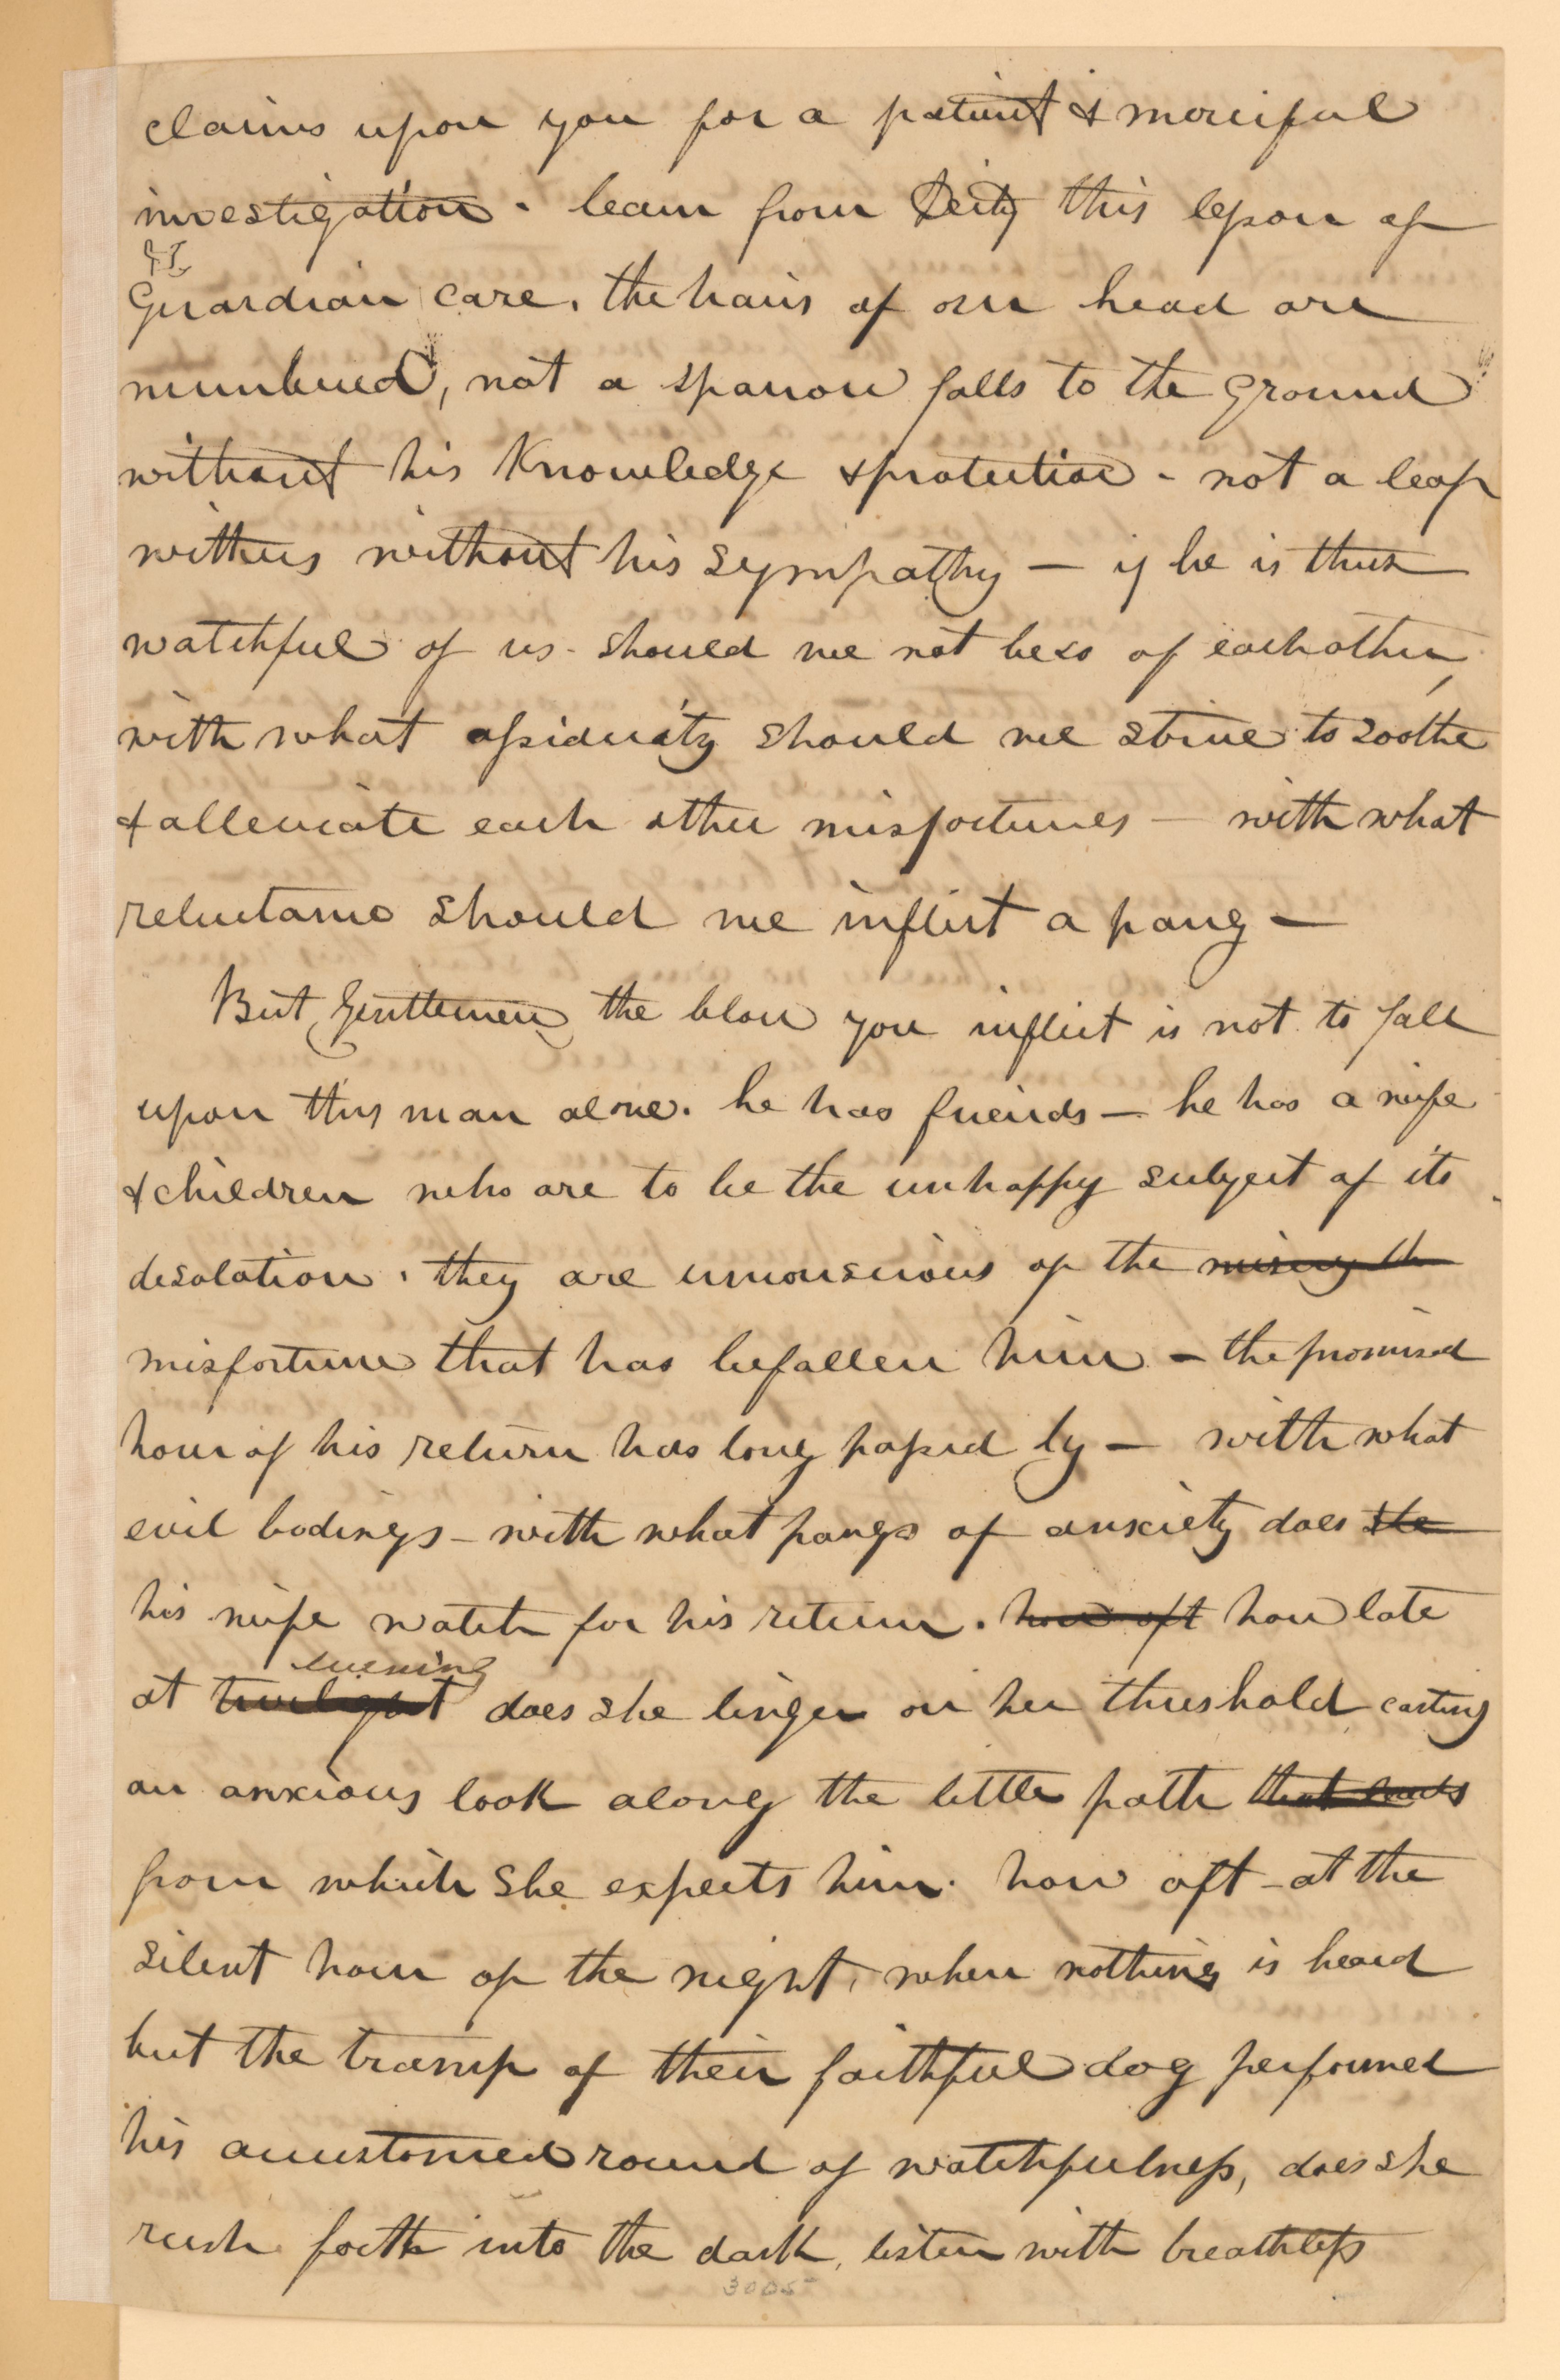 claims upon you for a patient & merciful
investigation. learn from Deity this lesson of
Guardian care, the hairs of our head are
numbered, not a sparrow falls to the ground
without his Knowledge & protection - not a leaf
withers without his sympathy — if he is thus
watchful of us - should we not be so of each other,
with what assiduity should we strive to soothe
& alleviate each other misfortunes — with what
reluctance should we inflict a pang —
But Gentlemen the blow you inflict is not to fall
upon this man alone. he has friends — he has a wife
& children who are to be the unhappy subject of its
desolation. they are unconscious of the misery th
misfortune that has befallen him — the promised
hour of his return has long passed by — with what
evil bodings — with what pangs of anxiety does she
his wife watch for his return. how oft how late
evening
at twilight does she linger on her threshold casting
an anxious look along the little path that leads
from which she expects him. how oft - at the
silent hour of the night, when nothing is heard
but the tramp of their faithful dog performed
his accustomed round of watchfulness, does she
rush forth into the dark, listen with breathless
3005